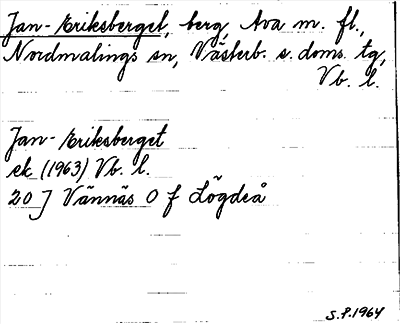 Jan-Eriksberget, berg, Ava m. fl.,
Nordmalings sn, Västerb. s. doms. tg,
Vb. l.
Jan-Eriksberget
ek (1963) Vb. l.
20 J Vännäs O f Lögdeå
S.P. 1964